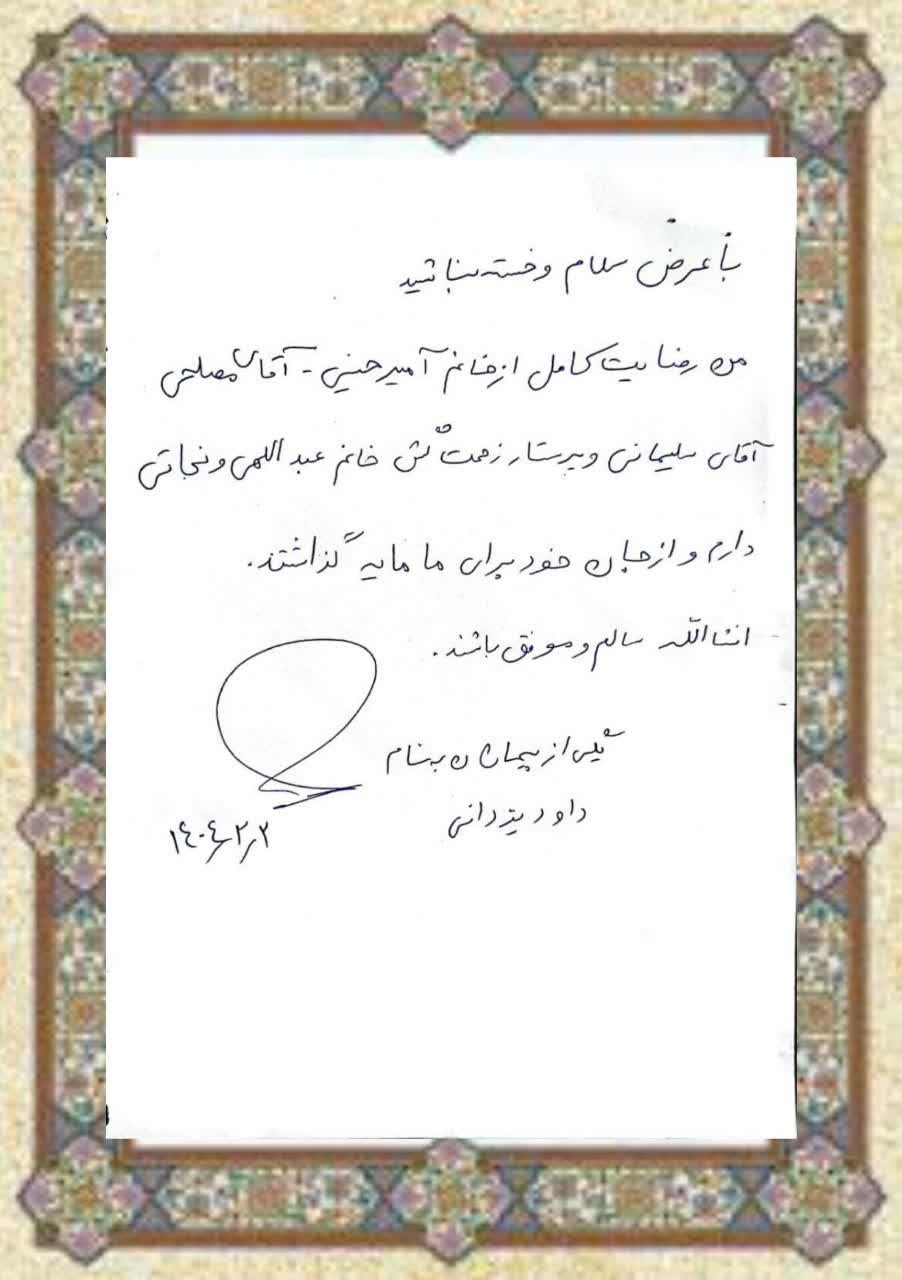 با عرض سلام و خسته نباشید
من رضایت کامل از خانم امیرحسینی - آقای مصلحی
آقای سلیمانی و پرستار زحمت کش خانم عبداللهی و نجاتی
دارم و از جان خود برای ما مایه گذاشتند.
انشاالله سالم و موفق باشند.
یکی از بیماران به نام
داود یزدانی
۱۴۰۴/۲/۲